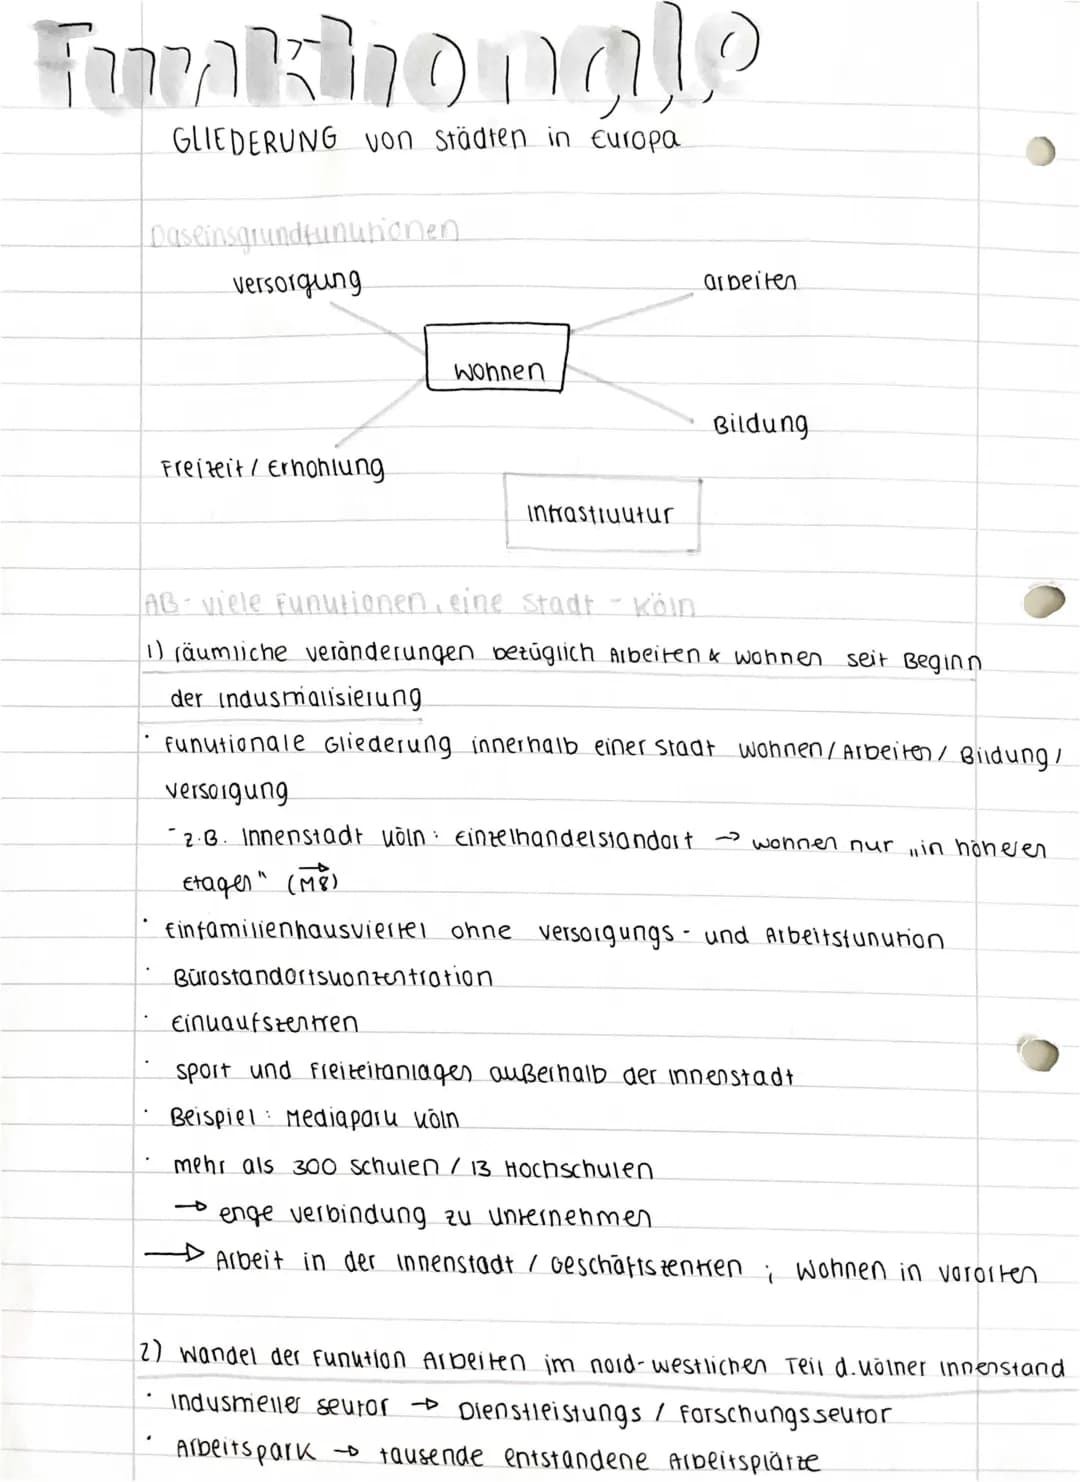 Funktionale
GLIEDERUNG von Städten in Europa
Daseinsgrundfunktionen
Versorgung
arbeiten
Wohnen
Bildung
Freizeit / Erhohlung
Infrastruktur
AB - viele Funktionen, eine Stadt - Köln
1) räumliche Veränderungen bezüglich Arbeiten & Wohnen seit Beginn
der Industrialisierung
· Funktionale Gliederung innerhalb einer Stadt Wohnen / Arbeiten / Bildung /
Versorgung
- z.B. Innenstadt Köln: Einzelhandelsstandort → wohnen nur „in höheren
Etagen" (M8)
· Einfamilienhausviertel ohne Versorgungs- und Arbeitsfunktion
· Bürostandortskonzentration
· Einkaufszentren
· Sport und Freizeitanlagen außerhalb der Innenstadt
· Beispiel: Mediapark Köln
· mehr als 300 Schulen / 13 Hochschulen
→ enge Verbindung zu Unternehmen
→ Arbeit in der Innenstadt / Geschäftszentren ; Wohnen in Vororten
2) Wandel der Funktion Arbeiten im nord-westlichen Teil d. Kölner Innenstand
· Industrieller Sektor → Dienstleistungs / Forschungssektor
· Arbeitspark → tausende entstandene Arbeitsplätze